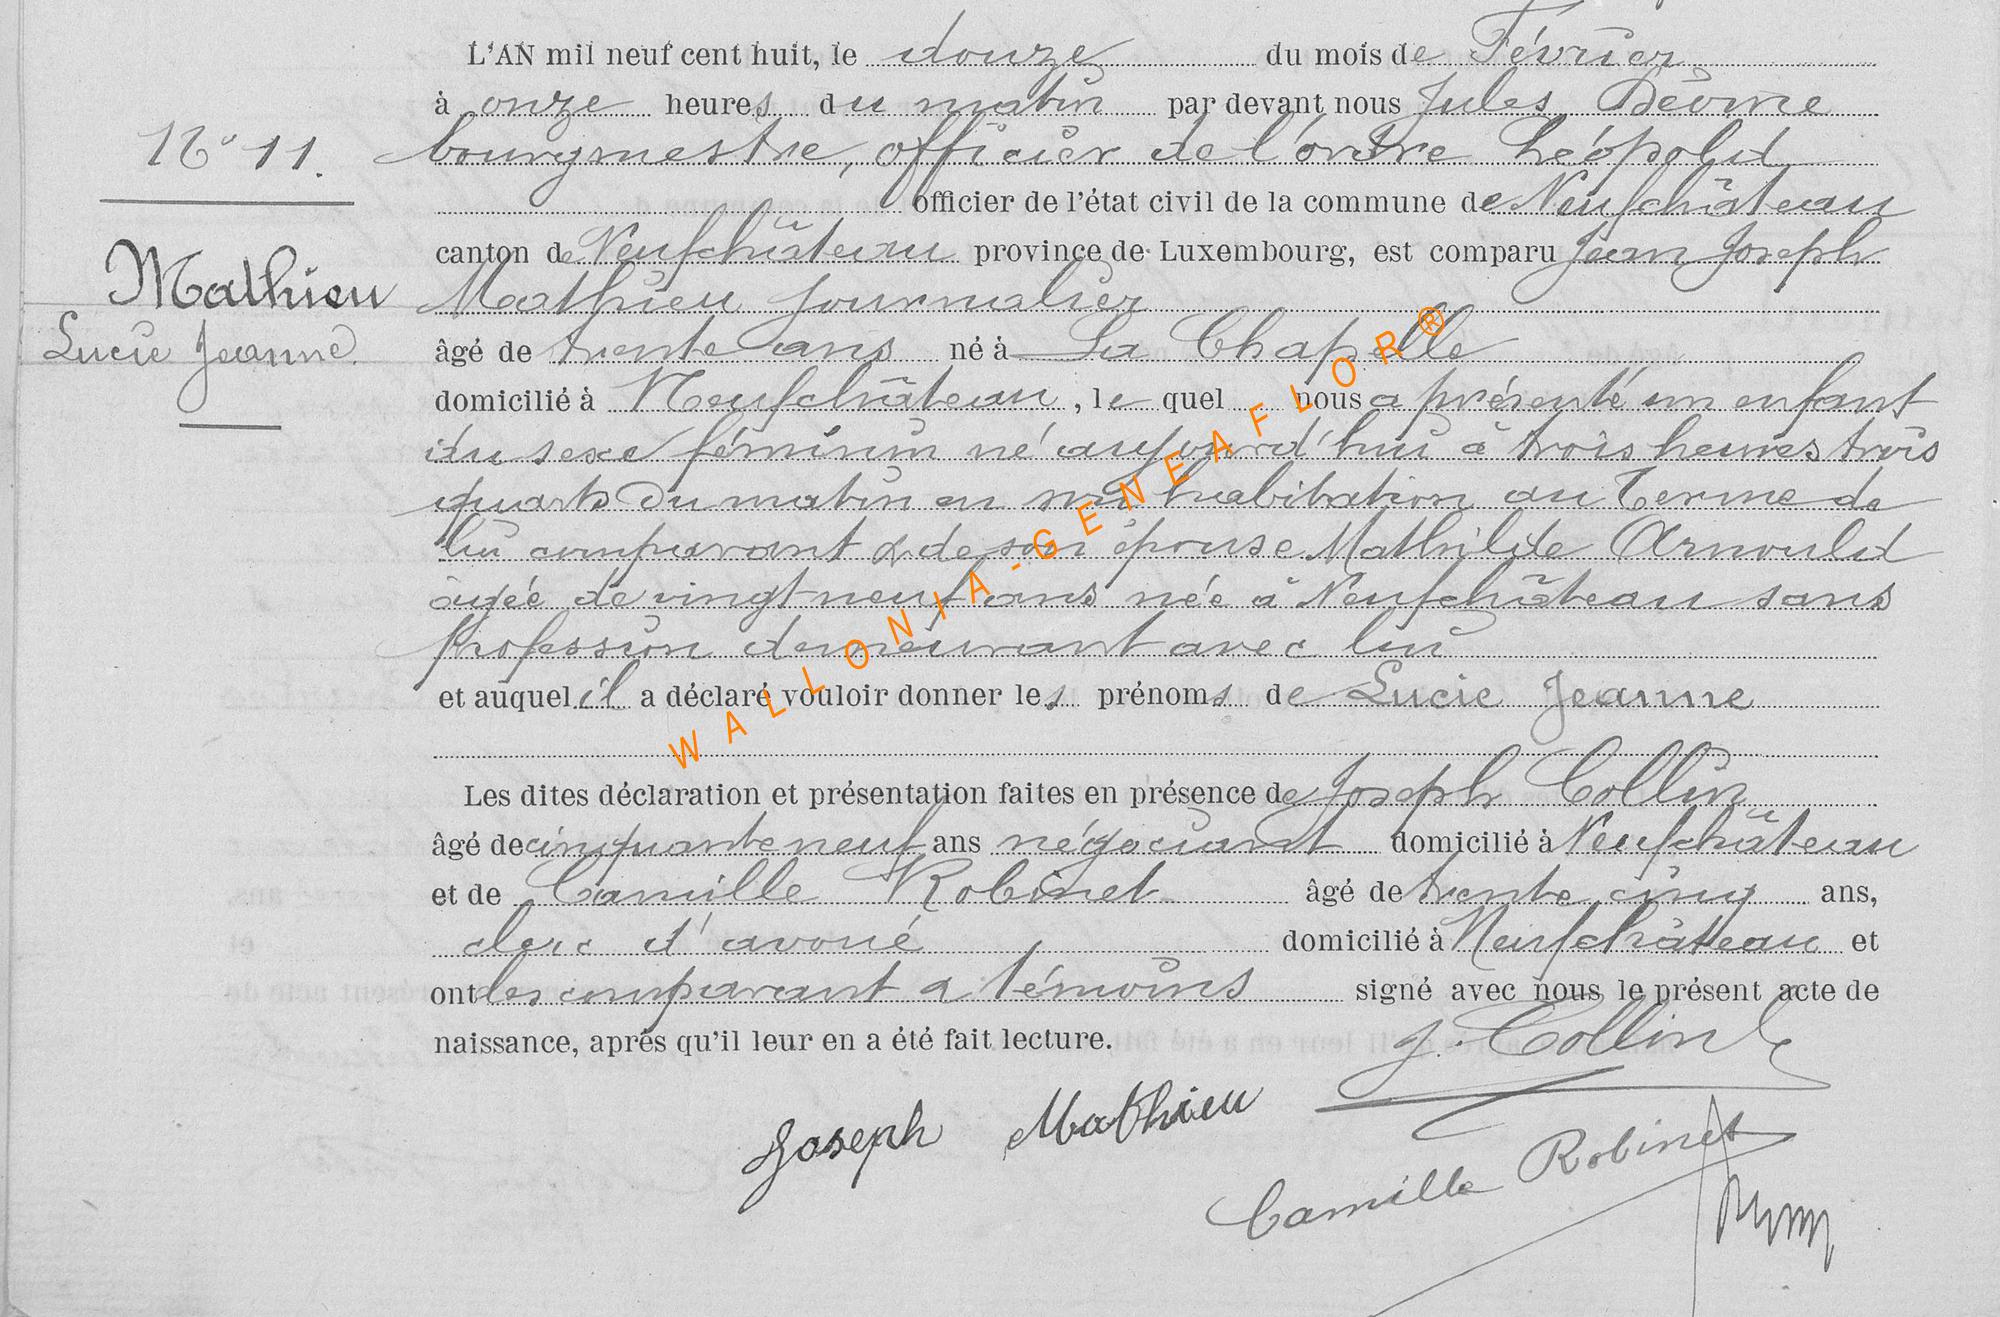 L'AN mil neuf cent huit, le douze du mois de Février
à onze heures du matin par devant nous Jules
N° 11.
bourgmestre, officier de l'ordre Léopold
officier de l'état civil de la commune de Neufchâteau
canton de Neufchâteau province de Luxembourg, est comparu Jean Joseph
Mathieu
Lucie Jeanne
Mathieu journalier
âgé de trente ans né à La Chapelle
domicilié à Neufchâteau, le quel nous a présenté un enfant
du sexe féminin né aujourd'hui à trois heures trois
quarts du matin en son habitation au Terme de
lui comparant & de son épouse Mathilde Arnould
âgée de vingt neuf ans née à Neufchâteau sans
profession demeurant avec lui
et auquel il a déclaré vouloir donner les prénoms de Lucie Jeanne
Les dites déclaration et présentation faites en présence de Joseph Collin
âgé de cinquante neuf ans négociant domicilié à Neufchâteau
et de Camille Robinet âgé de trente cinq ans,
clerc d'avoué domicilié à Neufchâteau et
ont les comparant & témoins signé avec nous le présent acte de
naissance, après qu'il leur en a été fait lecture.
J. Collin
Joseph Mathieu
Camille Robinet
WALLONIA-GENEAFLOR®